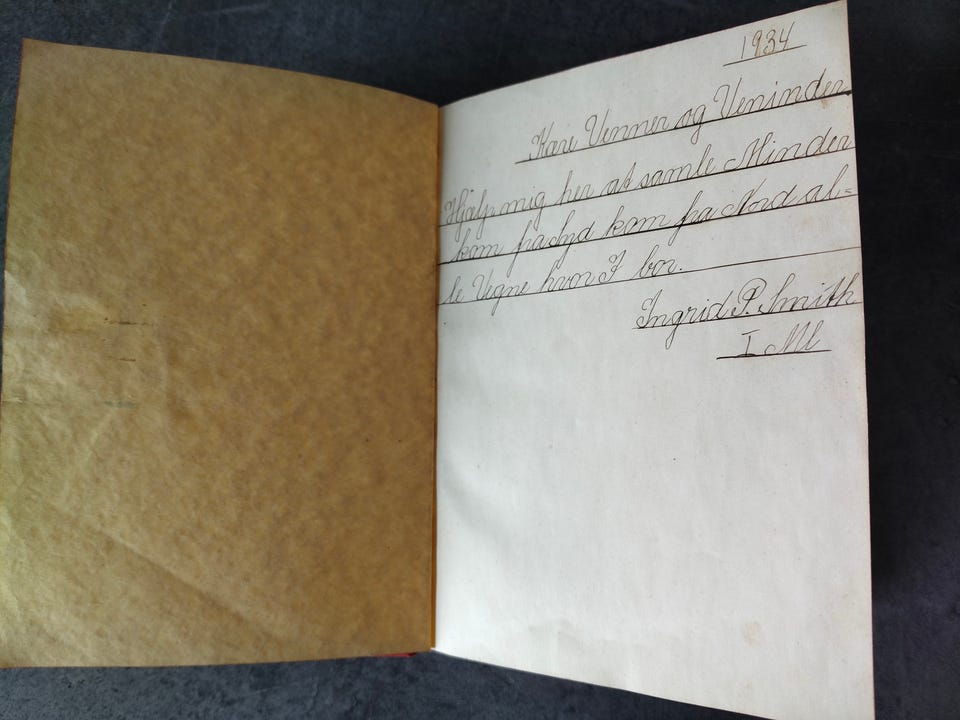 1934
Kære Venner og Veninder
Hjælp mig her at samle Minder
kom fra Syd kom fra Nord al=
le Vegne hvor I bor.
Ingrid P. Smith
I Ml